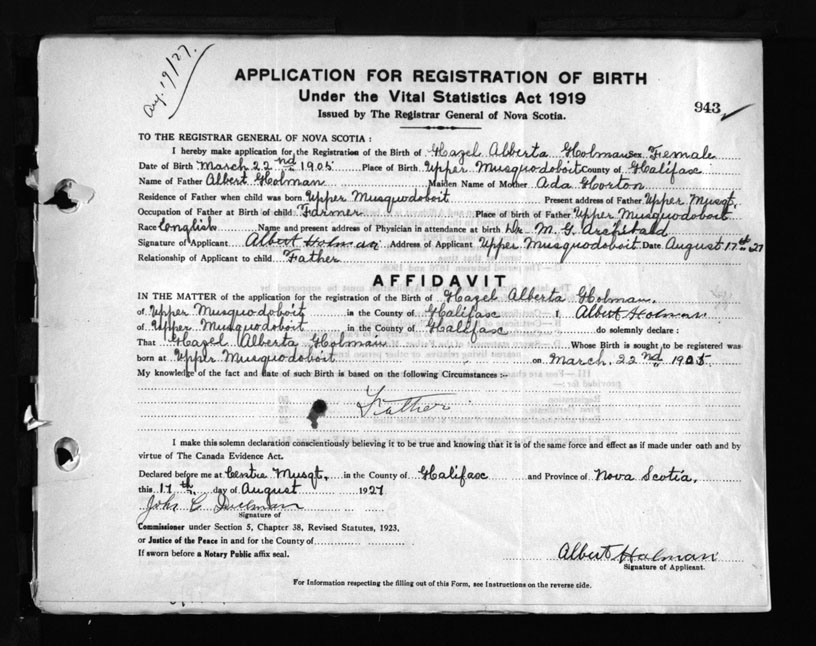 Aug. 19/27.
APPLICATION FOR REGISTRATION OF BIRTH
Under the Vital Statistics Act 1919
943
Issued by The Registrar General of Nova Scotia.
TO THE REGISTRAR GENERAL OF NOVA SCOTIA :
I hereby make application for the Registration of the Birth of Hazel Alberta Holman Sex Female
Date of Birth March 22nd 1905 Place of Birth Upper Musquodoboit County of Halifax
Name of Father Albert Holman Maiden Name of Mother Ada Horton
Residence of Father when child was born Upper Musquodoboit Present address of Father Upper Musqt.
Occupation of Father at Birth of child Farmer Place of birth of Father Upper Musquodoboit
Race English Name and present address of Physician in attendance at birth Dr. M. G. Archibald
Signature of Applicant Albert Holman Address of Applicant Upper Musquodoboit Date August 17th 27
Relationship of Applicant to child Father
AFFIDAVIT
IN THE MATTER of the application for the registration of the Birth of Hazel Alberta Holman.
of Upper Musquodoboit in the County of Halifax I Albert Holman
of Upper Musquodoboit in the County of Halifax do solemnly declare :
That Hazel Alberta Holman Whose Birth is sought to be registered was
born at Upper Musquodoboit on March. 22nd 1905.
My knowledge of the fact and date of such Birth is based on the following Circumstances :-
Father
I make this solemn declaration conscientiously believing it to be true and knowing that it is of the same force and effect as if made under oath and by
virtue of The Canada Evidence Act.
Declared before me at Centre Musqt. in the County of Halifax and Province of Nova Scotia.
this 17th. day of August 1927
John C
Signature of
Commissioner under Section 5, Chapter 38, Revised Statutes, 1923.
or Justice of the Peace in and for the County of
If sworn before a Notary Public affix seal.
Albert Holman
Signature of Applicant.
For Information respecting the filling out of this Form, see Instructions on the reverse side.